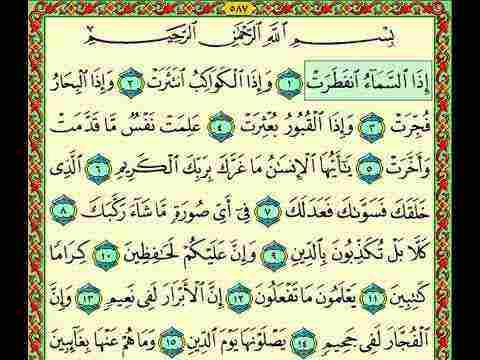 ٥٨٧
بِسْمِ ٱللَّهِ ٱلرَّحْمَٰنِ ٱلرَّحِيمِ
إِذَا ٱلسَّمَآءُ ٱنفَطَرَتْ ١ وَإِذَا ٱلْكَوَاكِبُ ٱنتَثَرَتْ ٢ وَإِذَا ٱلْبِحَارُ
فُجِّرَتْ ٣ وَإِذَا ٱلْقُبُورُ بُعْثِرَتْ ٤ عَلِمَتْ نَفْسٌ مَّا قَدَّمَتْ
وَأَخَّرَتْ ٥ يَٰٓأَيُّهَا ٱلْإِنسَٰنُ مَا غَرَّكَ بِرَبِّكَ ٱلْكَرِيمِ ٦ ٱلَّذِى
خَلَقَكَ فَسَوَّىٰكَ فَعَدَلَكَ ٧ فِىٓ أَىِّ صُورَةٍ مَّا شَآءَ رَكَّبَكَ ٨
كَلَّا بَلْ تُكَذِّبُونَ بِٱلدِّينِ ٩ وَإِنَّ عَلَيْكُمْ لَحَٰفِظِينَ ١٠ كِرَامًا
كَٰتِبِينَ ١١ يَعْلَمُونَ مَا تَفْعَلُونَ ١٢ إِنَّ ٱلْأَبْرَارَ لَفِى نَعِيمٍ ١٣ وَإِنَّ
ٱلْفُجَّارَ لَفِى جَحِيمٍ ١٤ يَصْلَوْنَهَا يَوْمَ ٱلدِّينِ ١٥ وَمَا هُمْ عَنْهَا بِغَآئِبِينَ